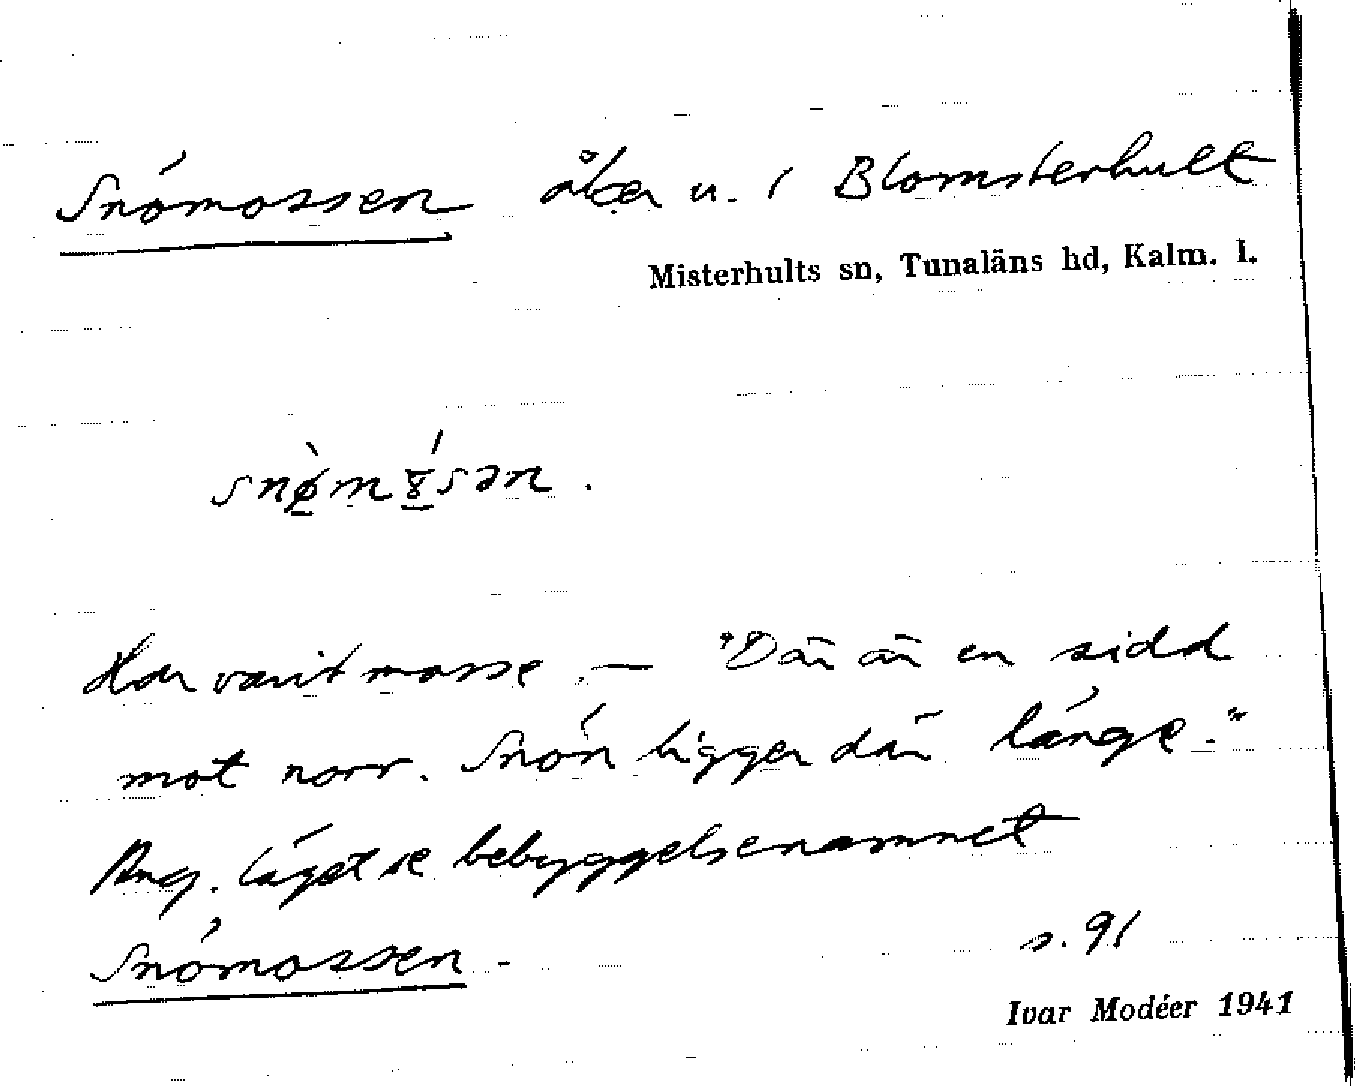 Snömossen åker u. / Blomsterhult
Misterhults sn, Tunaläns hd, Kalm. l.
Har varit mosse. — "Där är en sidd
mot norr. Snön ligger där länge."
Ang. läget se bebyggelsenamnet
Snömossen. s. 91
Ivar Modéer 1941